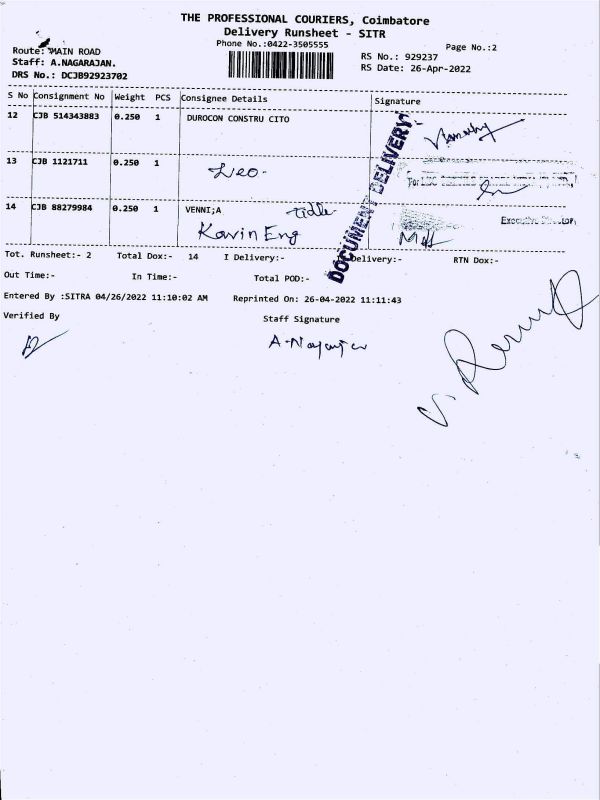 THE PROFESSIONAL COURIERS, Coimbatore
Delivery Runsheet - SITR
Phone No.:0422-3505555
Page No.:2
Route: MAIN ROAD
RS No.: 929237
Staff: A.NAGARAJAN.
RS Date: 26-Apr-2022
DRS No.: DCJB92923702
S No Consignment No Weight PCS Consignee Details Signature
12 CJB 514343883 0.250 1 DUROCON CONSTRU CITO
13 CJB 1121711 0.250 1
Leo-
14 CJB 88279984 0.250 1 VENNI;A Tidle
Kavin Eng
DOCUMENT DELIVERY
Tot. Runsheet:- 2 Total Dox:- 14 I Delivery:- Delivery:- RTN Dox:-
Out Time:- In Time:- Total POD:-
Entered By :SITRA 04/26/2022 11:10:02 AM Reprinted On: 26-04-2022 11:11:43
Verified By Staff Signature
A-Nagarajan